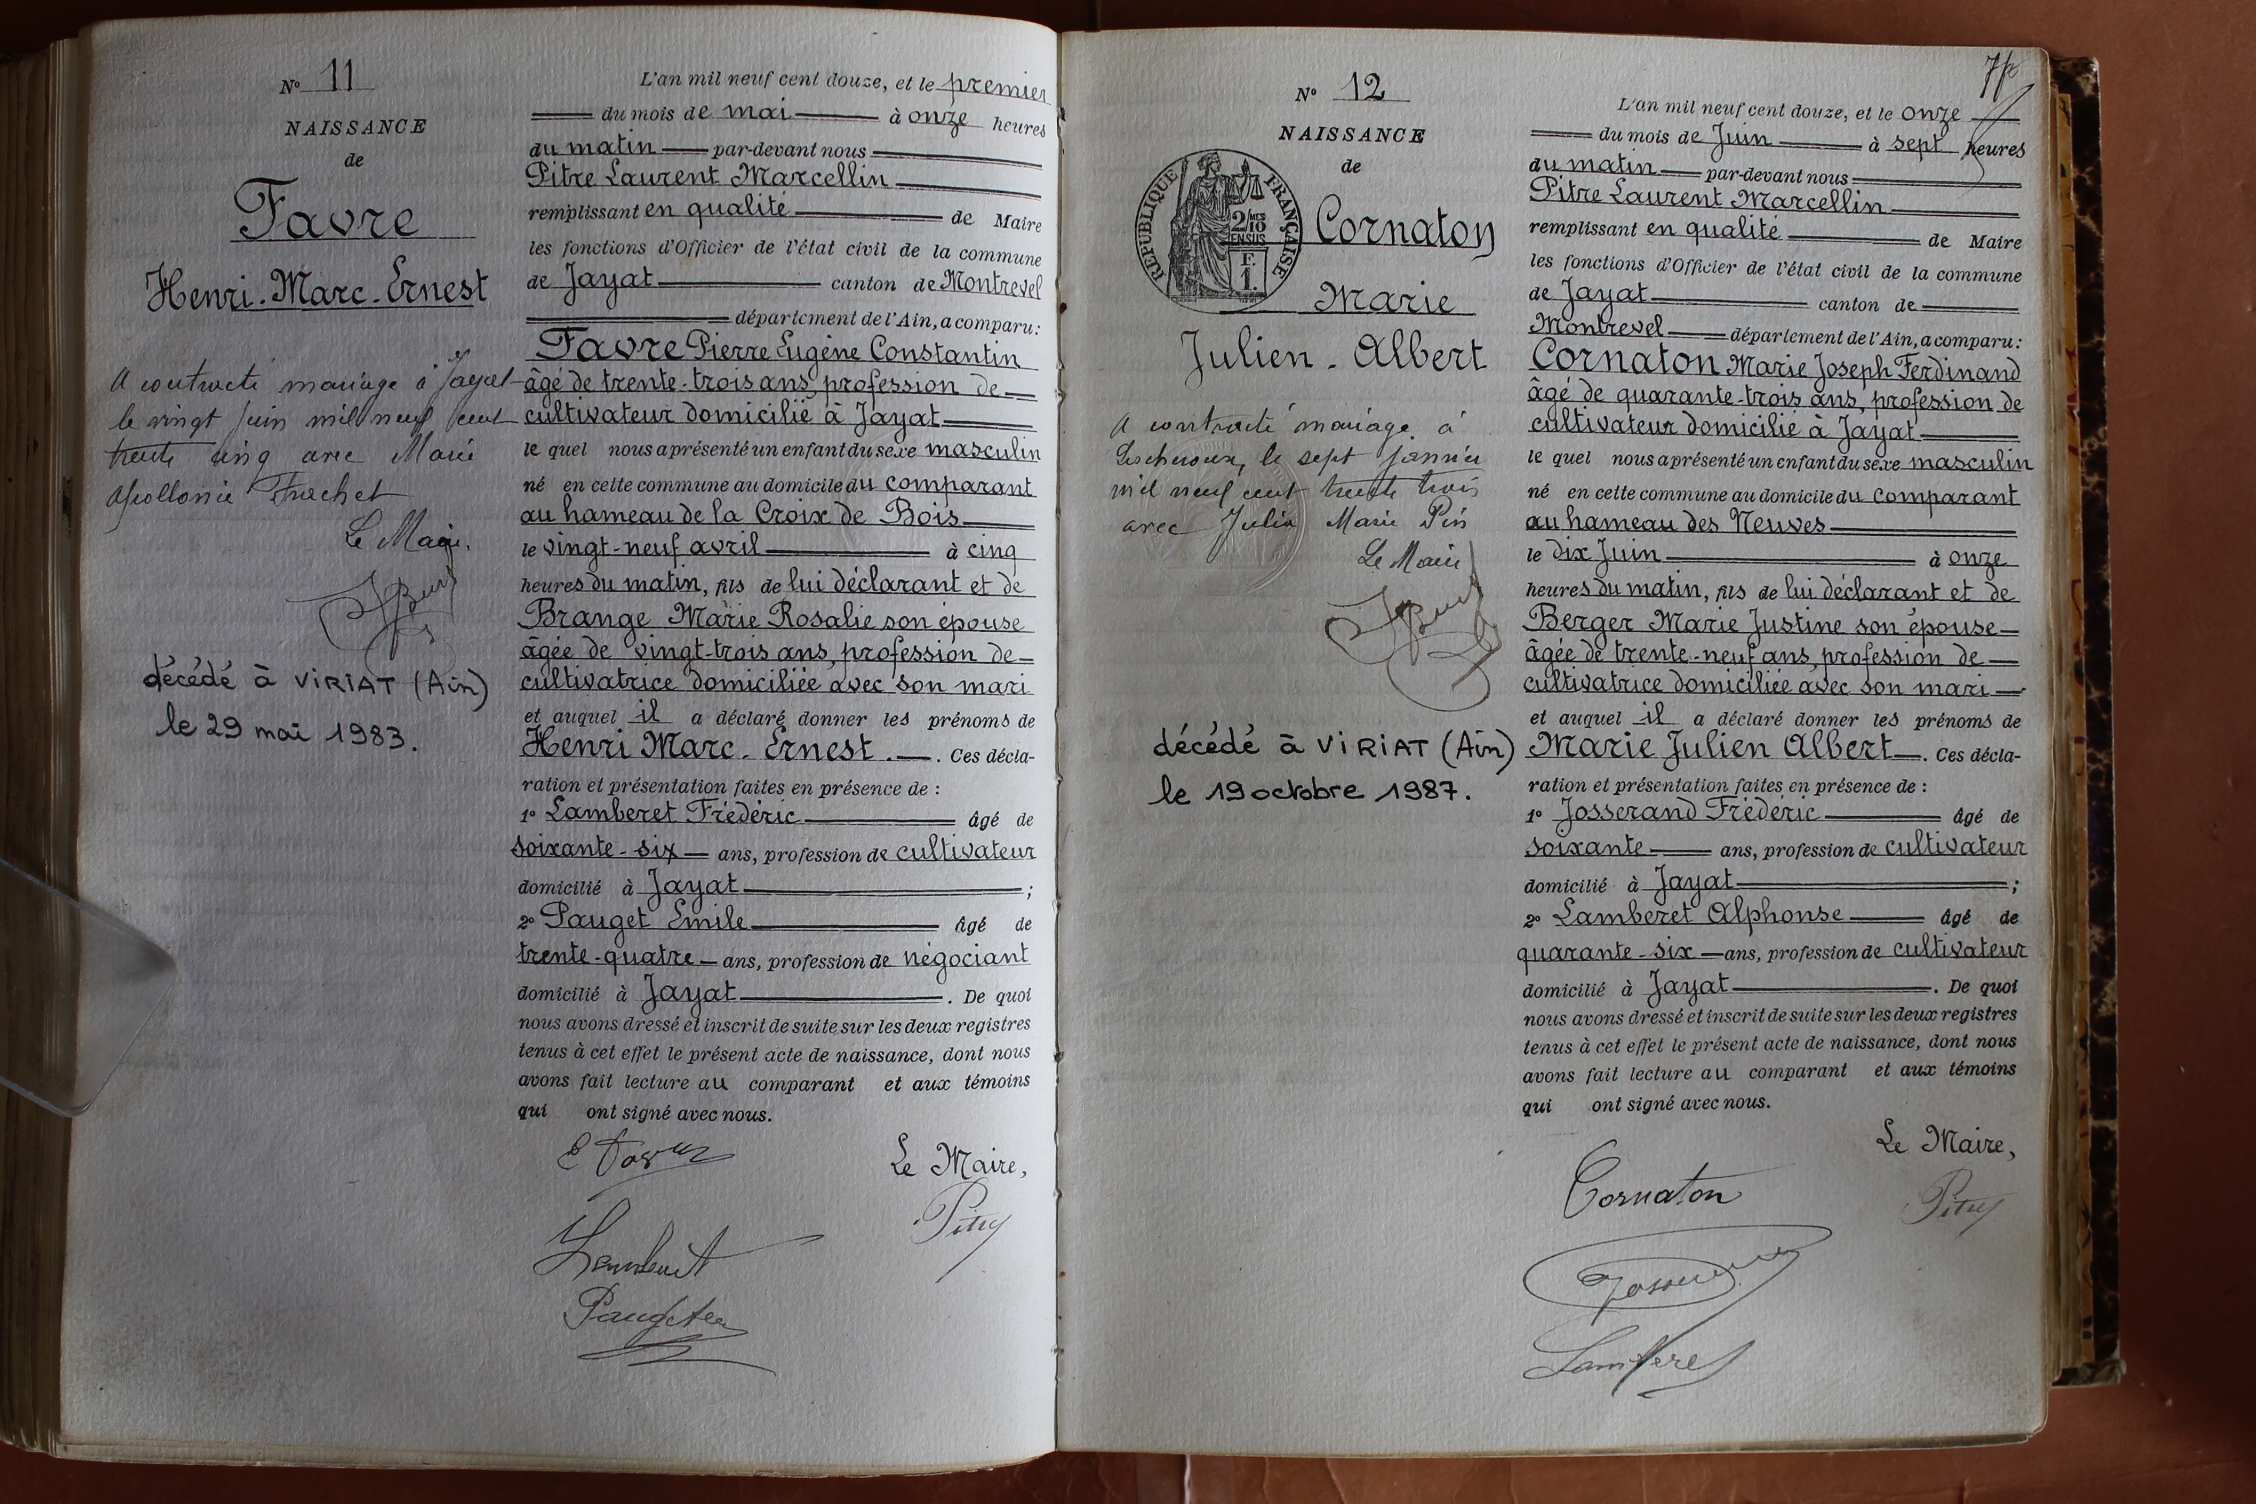 N° 11
NAISSANCE
de
Favre
Henri-Marc-Ernest
A contracté mariage à Jayat
le vingt juin mil neuf cent
trente cinq avec Marie
Apollonie
Le Maire,
décédé à VIRIAT (Ain)
le 29 mai 1983.
L'an mil neuf cent douze, et le premier
du mois de mai à onze heures
du matin par-devant nous
Pitre Laurent Marcellin
remplissant en qualité de Maire
les fonctions d'Officier de l'état civil de la commune
de Jayat canton de Montrevel
département de l'Ain, a comparu:
Favre Pierre Eugène Constantin
âgé de trente-trois ans, profession de
cultivateur domicilié à Jayat
le quel nous a présenté un enfant du sexe masculin
né en cette commune au domicile du comparant
au hameau de la Croix de Bois
le vingt-neuf avril à cinq
heures du matin, fils de lui déclarant et de
Brange Marie Rosalie son épouse
âgée de vingt-trois ans, profession de
cultivatrice domiciliée avec son mari
et auquel il a déclaré donner les prénoms de
Henri Marc-Ernest. Ces décla-
ration et présentation faites en présence de :
1° Lamberet Frédéric âgé de
soixante-six ans, profession de cultivateur
domicilié à Jayat ;
2° Pauget Emile âgé de
trente-quatre ans, profession de négociant
domicilié à Jayat . De quoi
nous avons dressé et inscrit de suite sur les deux registres
tenus à cet effet le présent acte de naissance, dont nous
avons fait lecture au comparant et aux témoins
qui ont signé avec nous.
Le Maire,
E Favre
Pitre
Lamberet
Pauget
N° 12
NAISSANCE
de
RÉPUBLIQUE FRANÇAISE
2/10 MES
EN SUS
F.
1.
Cornaton
Marie
Julien-Albert
A contracté mariage à
Lescheroux, le sept janvier
mil neuf cent trente trois
avec Julia Marie Pin
Le Maire
décédé à VIRIAT (Ain)
le 19 octobre 1987.
L'an mil neuf cent douze, et le onze
du mois de Juin à sept heures
du matin par-devant nous
Pitre Laurent Marcellin
remplissant en qualité de Maire
les fonctions d'Officier de l'état civil de la commune
de Jayat canton de
Montrevel département de l'Ain, a comparu:
Cornaton Marie Joseph Ferdinand
âgé de quarante-trois ans, profession de
cultivateur domicilié à Jayat
le quel nous a présenté un enfant du sexe masculin
né en cette commune au domicile du comparant
au hameau des Neuves
le dix Juin à onze
heures du matin, fils de lui déclarant et de
Berger Marie Justine son épouse
âgée de trente-neuf ans, profession de
cultivatrice domiciliée avec son mari
et auquel il a déclaré donner les prénoms de
Marie Julien Albert. Ces décla-
ration et présentation faites en présence de :
1° Josserand Frédéric âgé de
soixante ans, profession de cultivateur
domicilié à Jayat ;
2° Lamberet Alphonse âgé de
quarante-six ans, profession de cultivateur
domicilié à Jayat . De quoi
nous avons dressé et inscrit de suite sur les deux registres
tenus à cet effet le présent acte de naissance, dont nous
avons fait lecture au comparant et aux témoins
qui ont signé avec nous.
Le Maire,
Cornaton
Pitre
Josserand
Lamberet